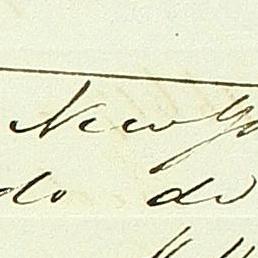 New Yo
do do